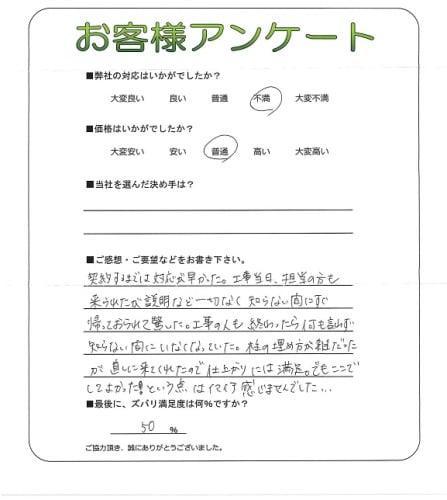 お客様アンケート
■弊社の対応はいかがでしたか？
大変良い　良い　普通　不満　大変不満
■価格はいかがでしたか？
大変安い　安い　普通　高い　大変高い
■当社を選んだ決め手は？
■ご感想・ご要望などをお書き下さい。
契約するまでは対応が早かった。工事当日、担当の方も
来られたが説明など一切なく知らない間にすぐ
帰っておられて驚した。工事の人も終わったら何も言わず
知らない間にいなくなっていた。柱の埋め方が雑だった
が直しに来てくれたので仕上がりには満足。でもここで
してよかった！という点は全く感じませんでした…
■最後に、ズバリ満足度は何％ですか？
50 ％
ご協力頂き、誠にありがとうございました。